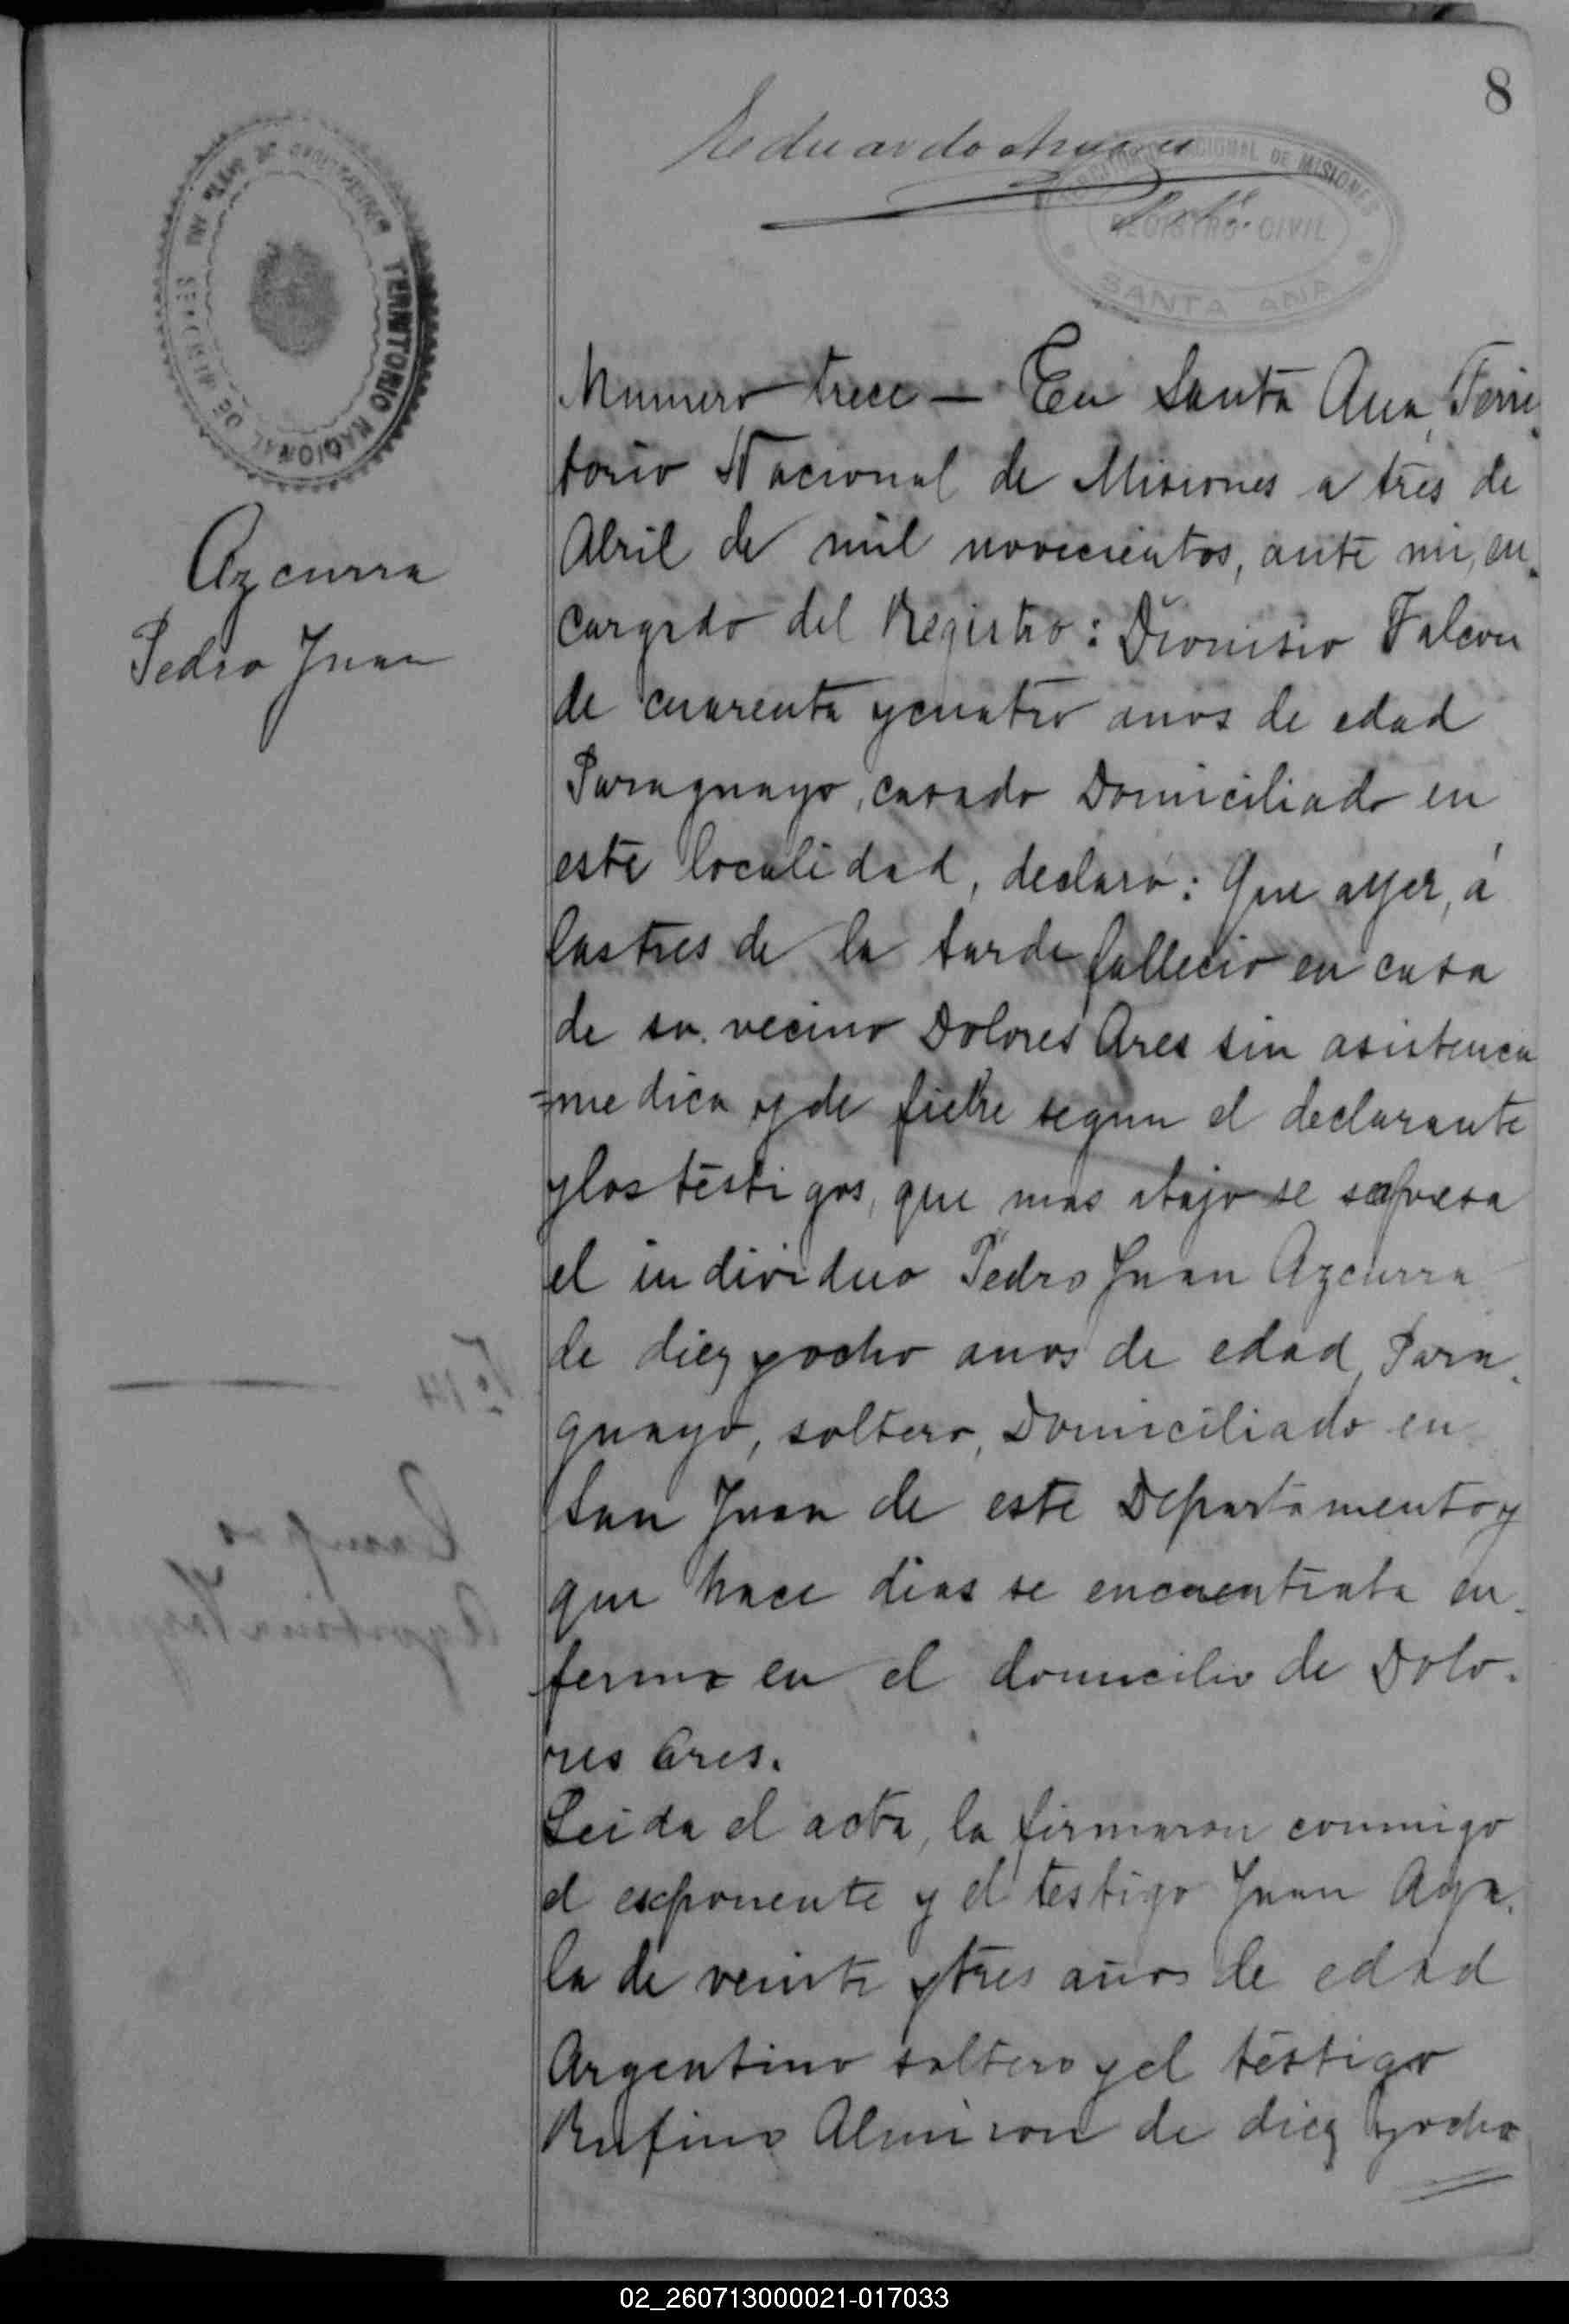 8
TERRITORIO NACIONAL DE MISIONES
REGISTRO CIVIL
SANTA ANA
TERRITORIO NACIONAL DE
Azcurra
Pedro Juan
Numero trece — En Santa Ana, Terri-
torio Nacional de Misiones a tres de
Abril de mil novecientos, ante mi, en-
cargado del Registro: Dionisio Falcon
de cuarenta y cuatro anos de edad
Paraguayo, casado Domiciliado en
este localidad, declaró: Que ayer, á
las tres de la tarde fallecio en casa
de su vecino Dolores Ares sin asistencia
=medica y de fiebre segun el declarante
y los testigos, que mas abajo se
el individuo Pedro Juan Azcurra
de diez y ocho anos de edad, Para-
guayo, soltero, Domiciliado en
San Juan de este Departamento y
que hace dias se encuentraba en-
fermo en el domicilio de Dolo-
res Ares.
Leida el acta, la firmaron conmigo
el exponente y el testigo Juan Aya-
la de veinte y tres años de edad
Argentino soltero y el testigo
Rufino Almiron de diez y ocho
02_260713000021-017033